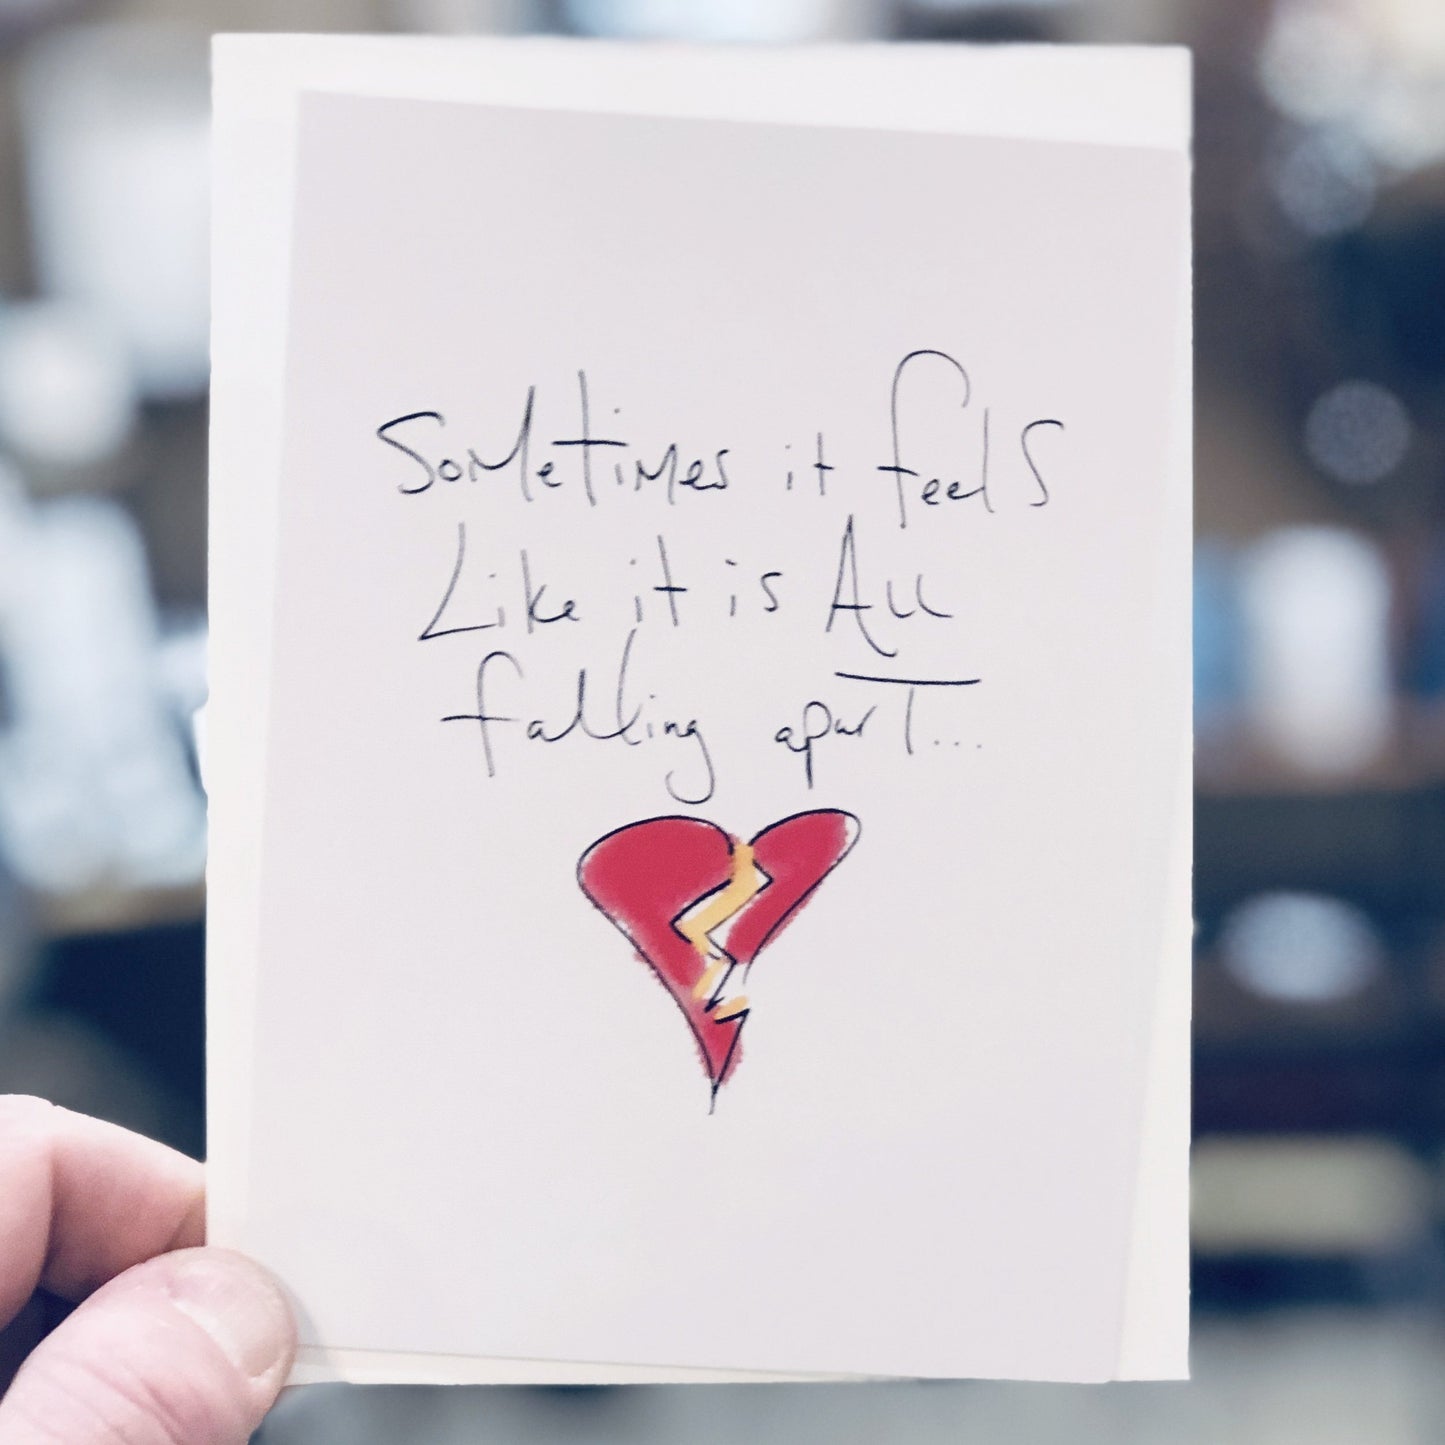 Sometimes it feels
Like it is All
falling apart...